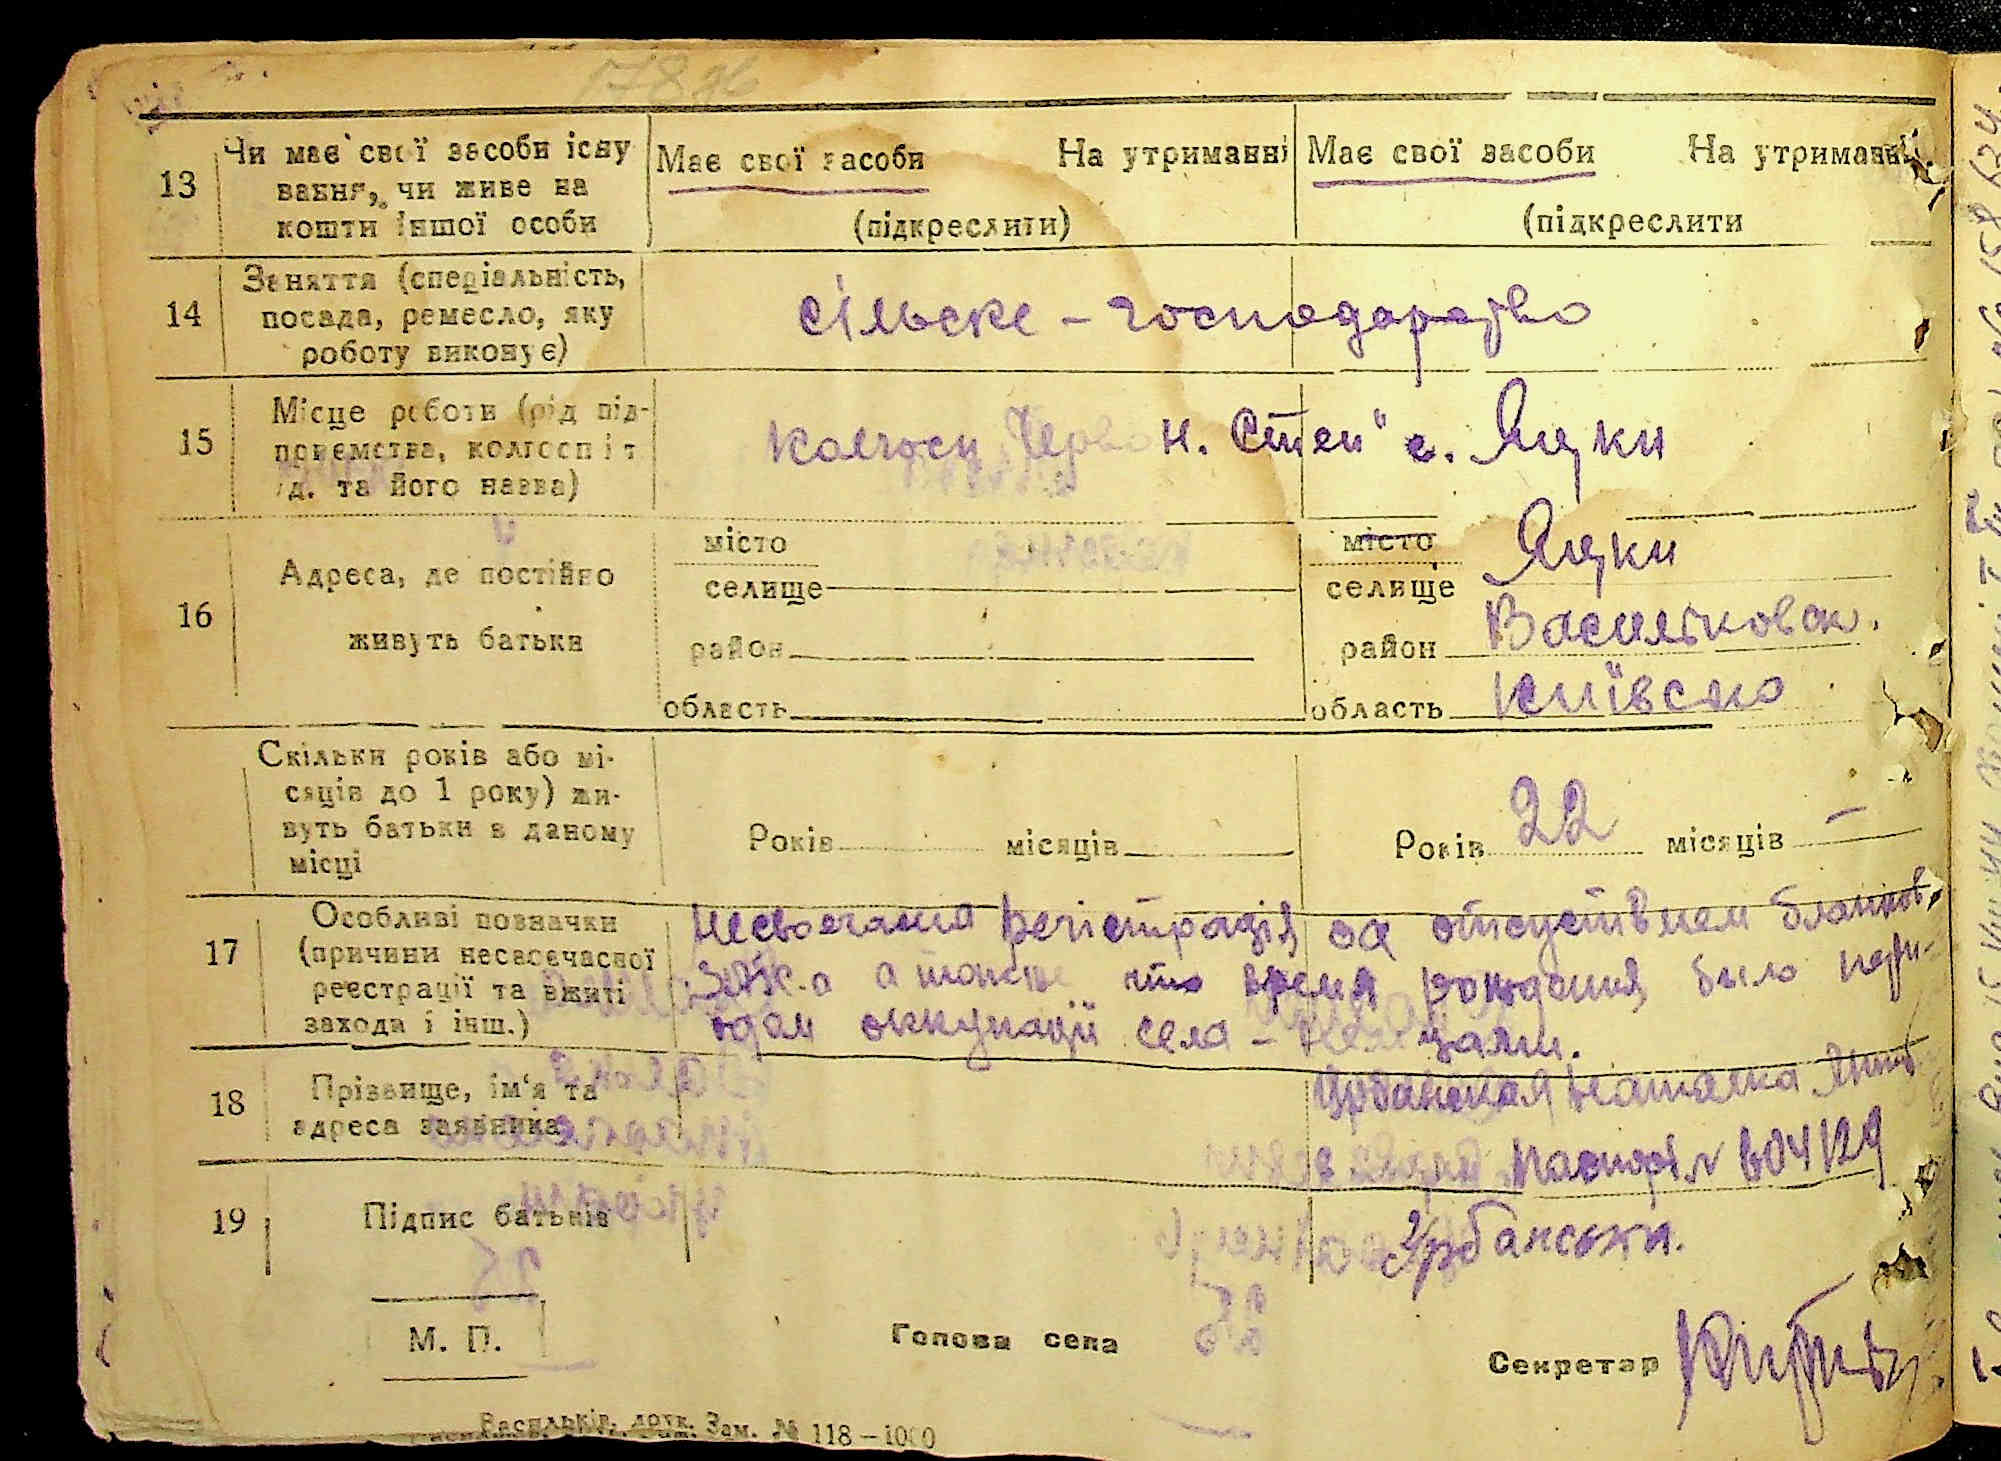 178 зв
13 Чи має свої засоби існу
вання, чи живе на
кошти іншої особи
Має свої засоби На утриманні
(підкреслити)
Має свої засоби На утриманні
(підкреслити
14 Заняття (спеціальність,
посада, ремесло, яку
роботу виконує)
сільске - господарство
15 Місце роботи (рід під-
приємства, колгосп і т
д. та його назва)
колгосп Червон. Степ" с. Яцки
16 Адреса, де постійно
живуть батьки
місто
селище
район
область
місто
селище Яцки
район Васильковск.
область Київско
Скільки років або мі-
сяців до 1 року) жи-
вуть батьки в даному
місці
Років місяців
Років 22 місяців –
17 Особливі позначки
(причини несвоєчасної
реєстрації та вжиті
заходи і інш.)
несвоєчасна регістрація за отсуствием бланков
ЗАГС-а а также что время рождения было пери-
одом оккупації села - немцами.
18 Прізвище, ім'я та
адреса заявника
Урбанская Наталка
Паспорт № 604129
19 Підпис батьків
Урбанська.
М. П.
Голова села
Секретар
Васильків, друк. Зам. № 118 – 1000